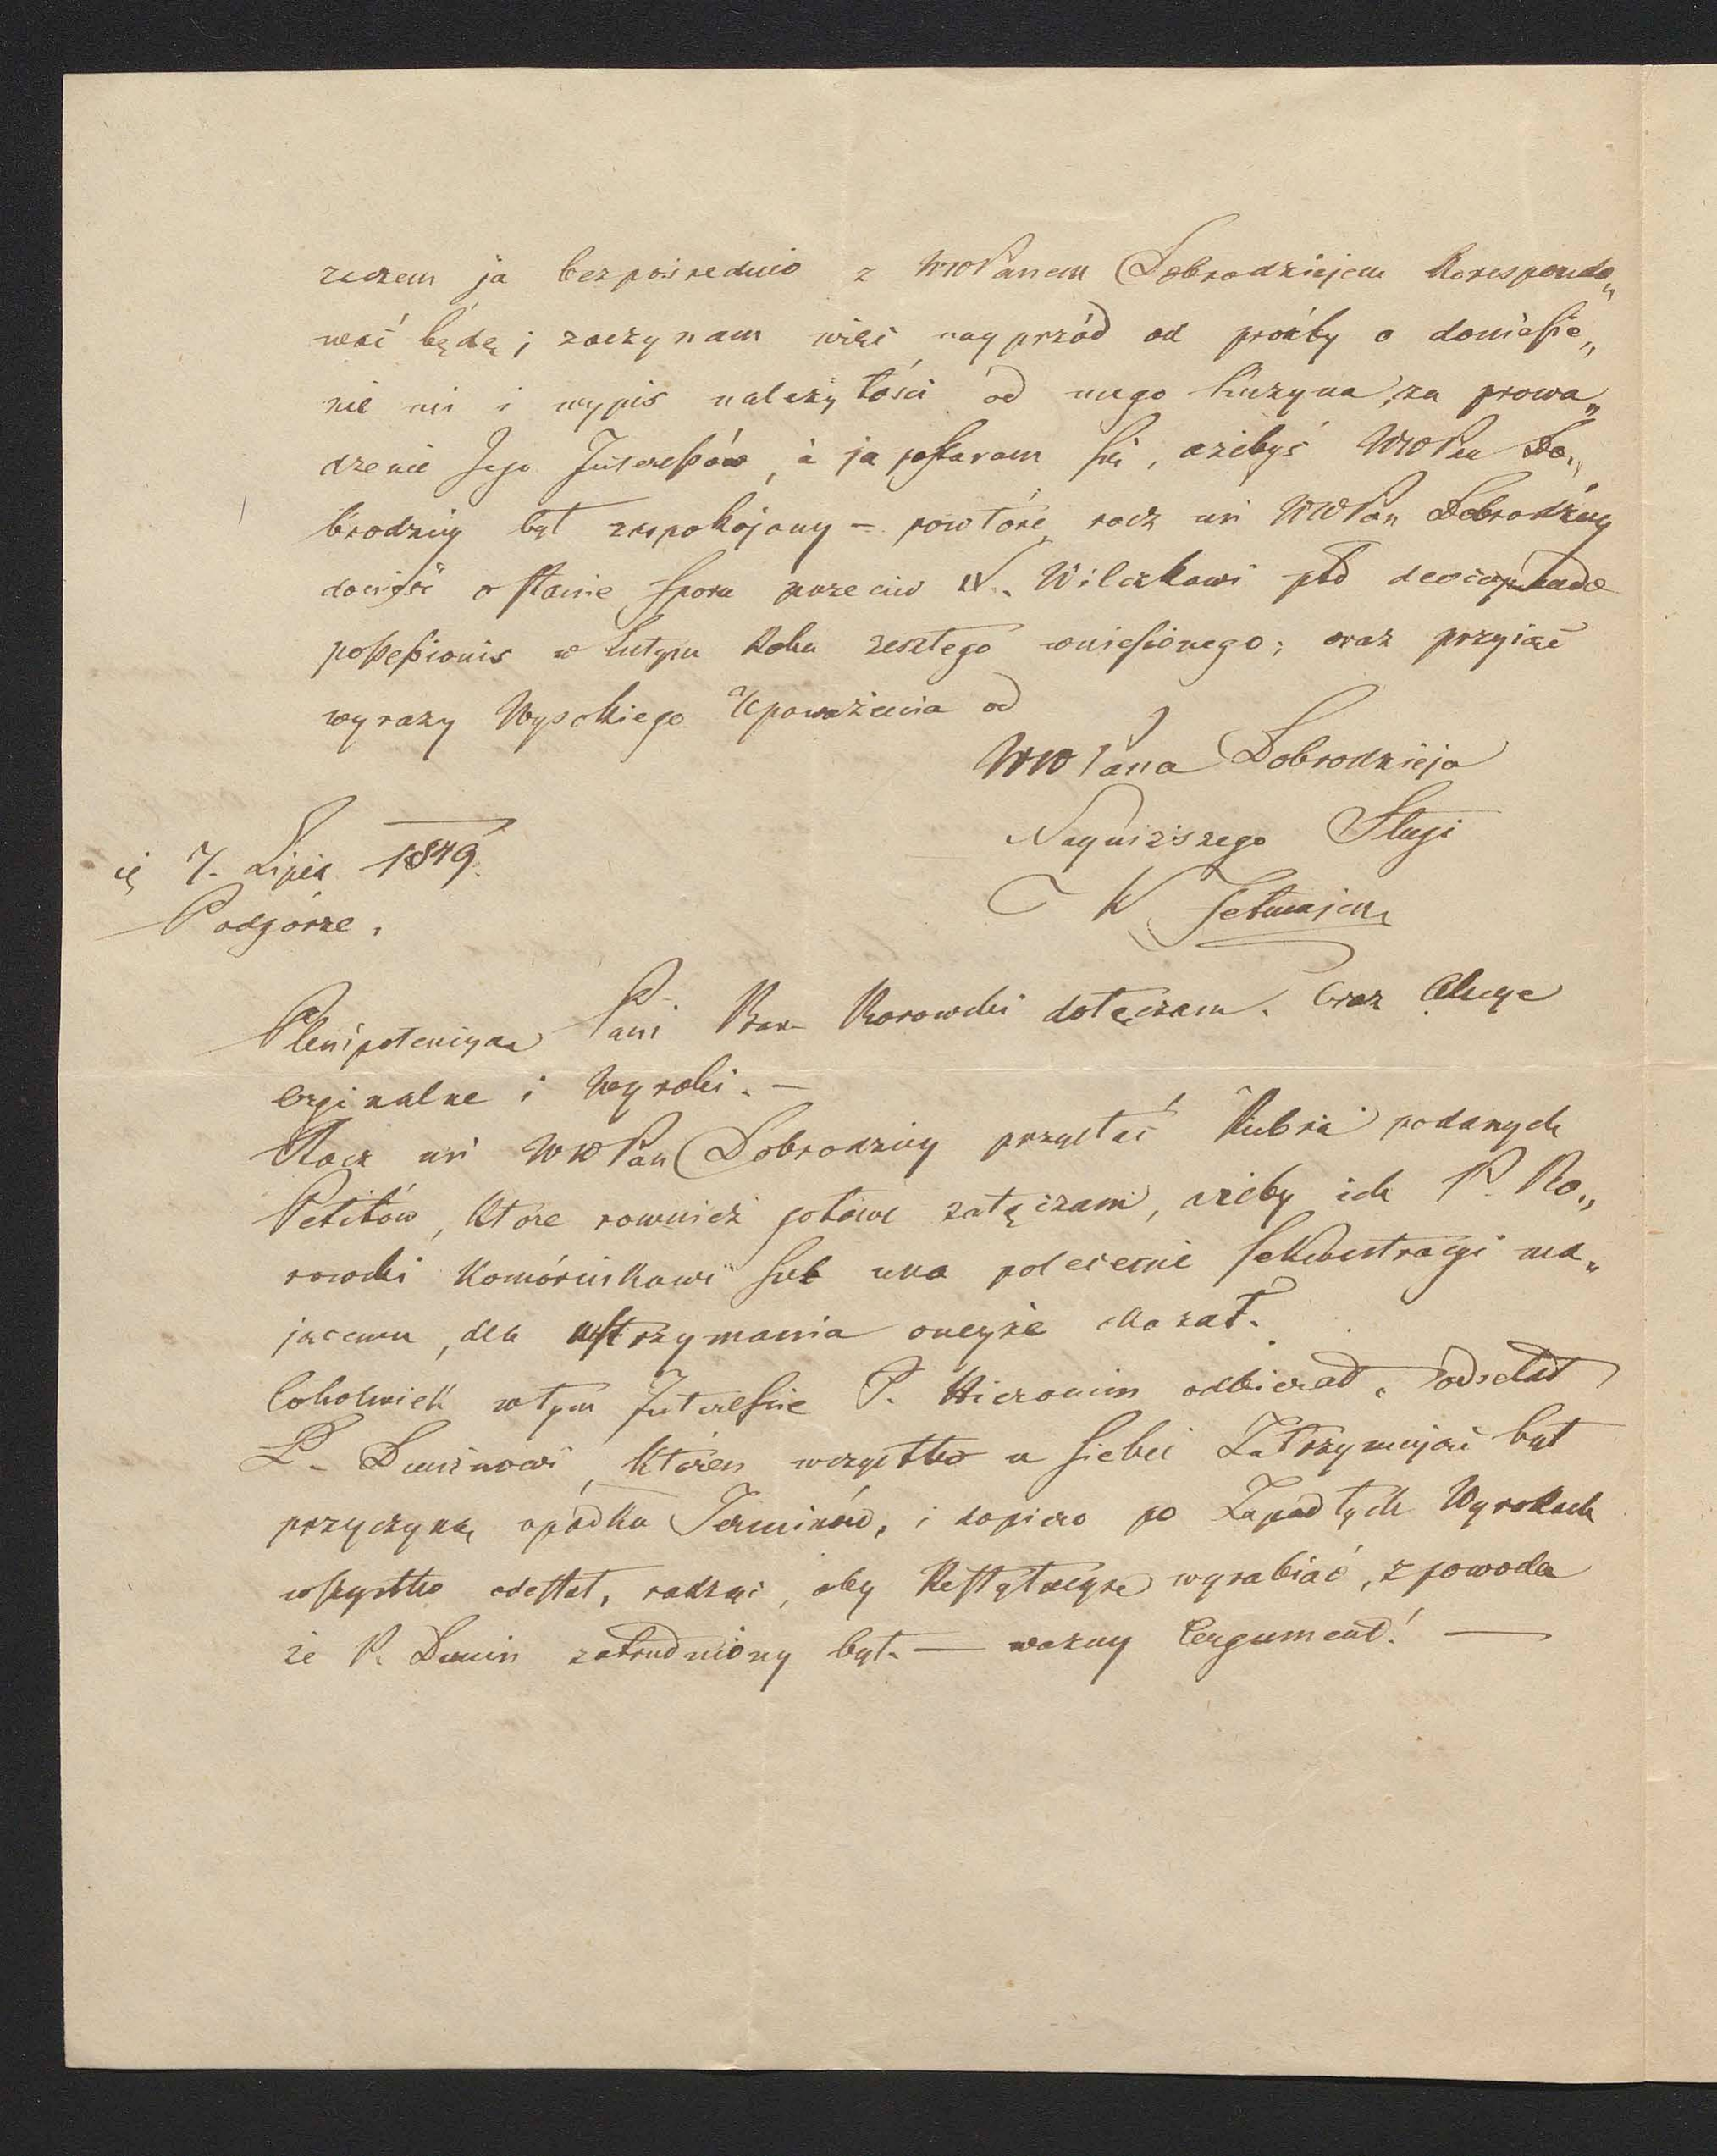 ja bezpośrednio z WWPanem Dobrodziejem Korespondo„
wać będę; zaczynam więc nayprzód od prośby o doniesie„
nie mi i wypis należytości od mego Kuzyna, za prowa„
dzenie Jego Interessów, a ja postaram się, ażebyś WWPan Do„
brodziey był zaspokojony – powtóre racz mi WWPan Dobrodziey
donieść o stanie sporu przeciw W. Wilczkowi pto
possessionis w Lutym Roku zeszłego wniesionego; oraz przyiąć
wyrazy Wysokiego Upoważenia od
WWPana Dobrodzieja
Nayniższego Sługi
W Tetmajera
7. Lipca 1849.
Podgórze.
Plenipotencyą Pani Bar. Borowski dołączam. Oraz
orginalne i Wyroki. –
Racz mi WWPan Dobrodziey przysłać Rubra podanych
Petitów, które rownież gotowe załączam, ażeby ich P. Bo„
rowski Komórnikowi polecenie Sekwestracyi ma„
jącemu, dla wstrzymania oneyże okazał.
Cokolwiek w tym Interessie P. Hieronim odbierał, odsełał
P. Duninowi, któren wszystko u siebie Zatrzymując był
przyczyną upadku Terminów, i dopiero po Zapadłych Wyrokach
wszystko odesłał, radząc, aby Restytucyę wyrabiać, z powodu
że P. Dunin zatrudniony był. — ważny Argument! —